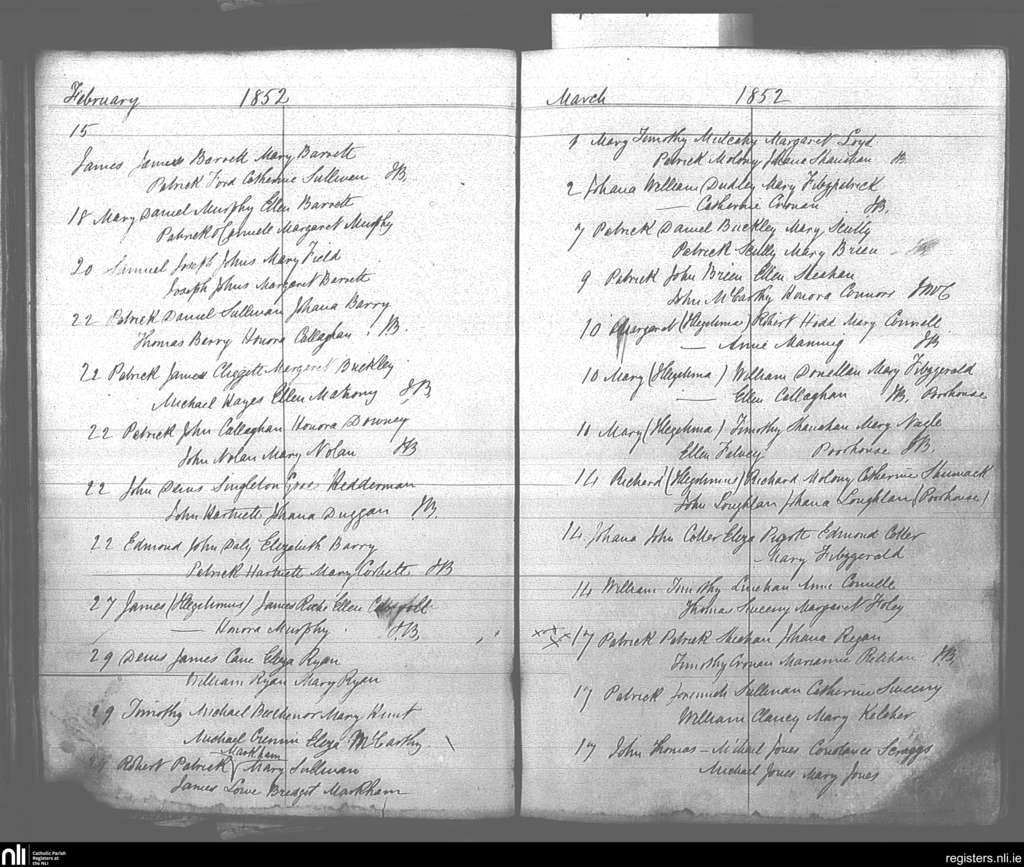 February 1852
15
James James Barrett Mary Barrett
Patrick Ford Catherine Sullivan JB.
18 Mary Daniel Murphy Ellen Barrett
Patrick Margaret Murphy
20 Samuel Joseph Johns Mary Field
Joseph Johns Margaret Barrett
22 Patrick Daniel Sullivan Johana Barry
Thomas Barry Honora Callaghan JB.
22 Patrick James Margaret Buckley
Michael Hayes Ellen Mahony JB.
22 Patrick John Callaghan Honora Downey
John Nolan Mary Nolan JB
22 John Denis Singleton Hedderman
John Hartnett Johana Duggan JB.
22 Edmond John Daly Elizabeth Barry
Patrick Hartnett Mary Corbett JB
27 James (Illegitimus) James Roche Ellen
— Honora Murphy. JB.
29 Denis James Cane Eliza Ryan
William Ryan Mary Ryan
29 Timothy Michael Mary
Michael Cronin Eliza McCarthy
Markham
29 Robert Patrick Mary Sullivan
James Lowe Bridget Markham
March 1852
1 Mary Timothy Mulcahy Margaret Loyd
Patrick Molony Johana Shanahan B.
2 Johana William Dudley Mary Fitzpatrick
— Catherine Cronan JB.
7 Patrick Daniel Buckley Mary Scully
Patrick Scully Mary Brien
9 Patrick John Brien Ellen Sheahan
John McCarthy Honora Connors
10 Margaret (Illegitima) Robert Hodd Mary Connell
— Anne Manning JB
10 Mary (Illegitima) William Donellan Mary Fitzgerald
— Ellen Callaghan JB. Poorhouse
10 Mary (Illegitima) Timothy Shanahan Mary Nagle
Ellen Poorhouse JB.
14 Richard (Illegitimus) Richard Molony Catherine
John Loughlan Johana Loughlan (Poorhouse)
14 Johana John Cotter Eliza Pigott Edmond Cotter
Mary Fitzgerald
14 William Timothy Linehan Anne Connell
Thomas Sweeny Margaret Foley
17 Patrick Patrick Sheahan Johana Regan
Timothy Cronan Marianne Relihan JB.
17 Patrick Jeremiah Sullivan Catherine Sweeny
William Clancy Mary Kelcher
17 John Thomas – Michael Jones Constance Scraggs
Michael Jones Mary Jones
nli Catholic Parish Registers at the NLI
registers.nli.ie